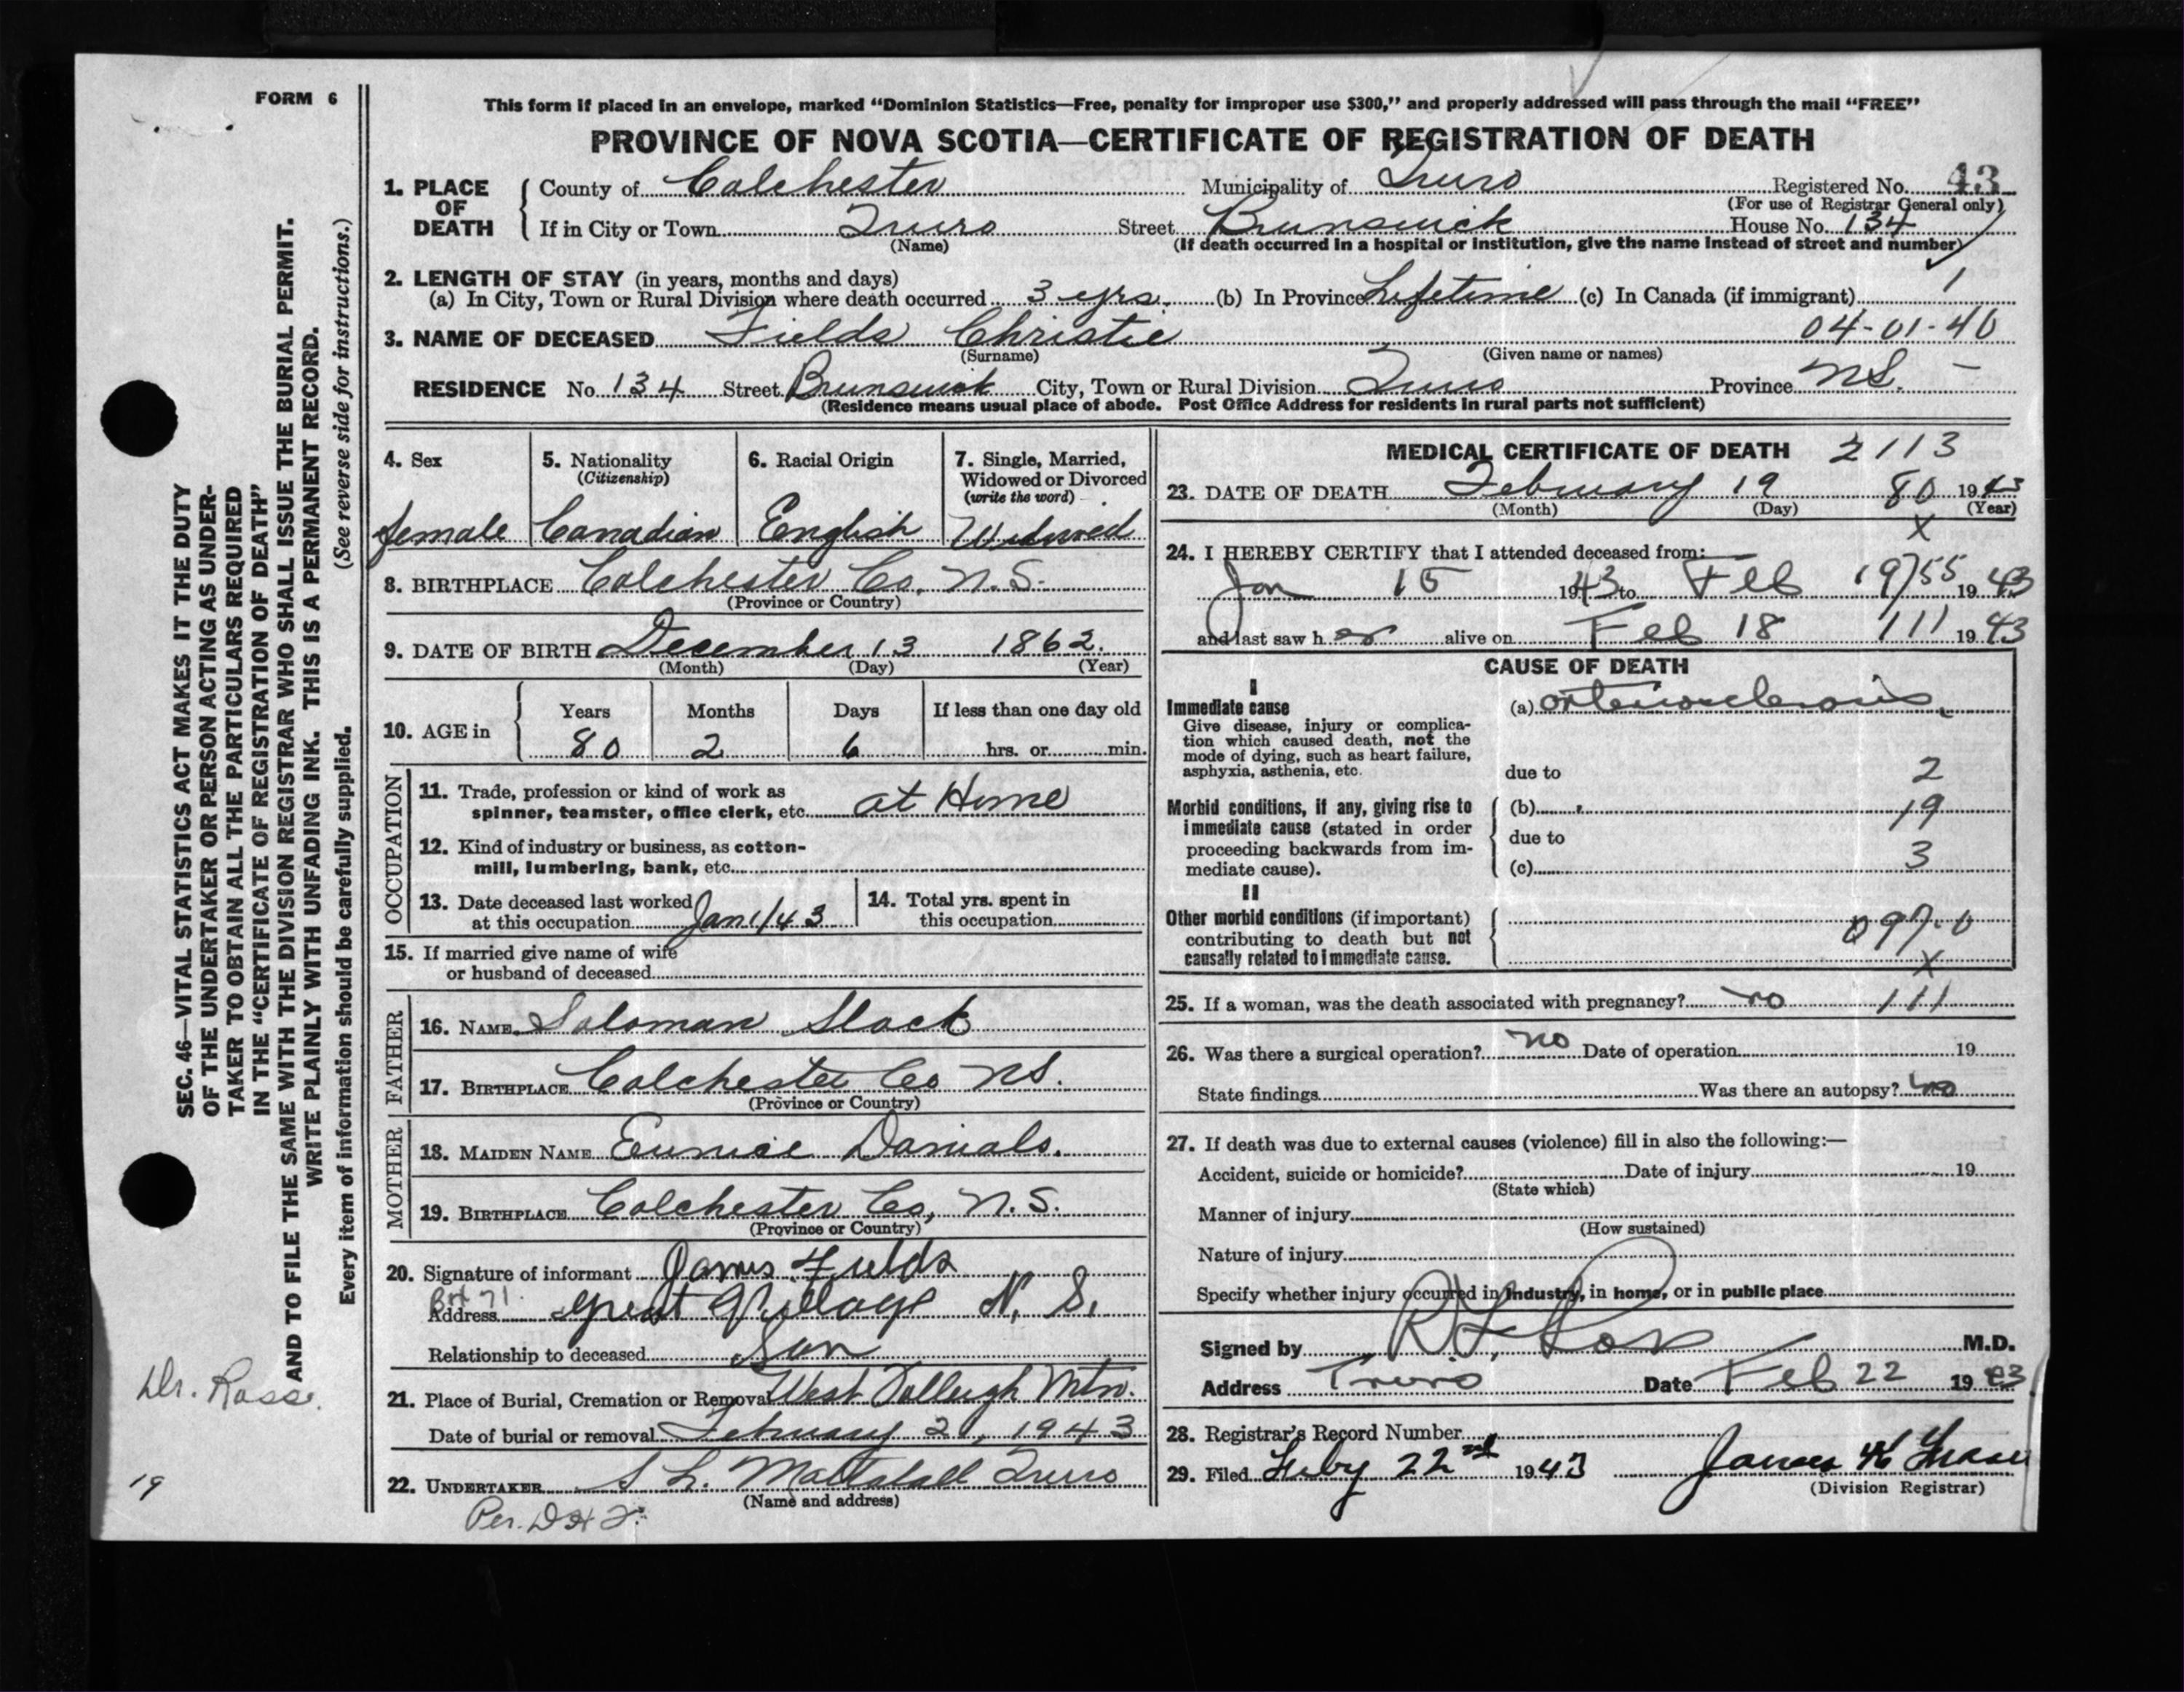 FORM 6
This form if placed in an envelope, marked "Dominion Statistics—Free, penalty for improper use $300," and properly addressed will pass through the mail "FREE"
PROVINCE OF NOVA SCOTIA—CERTIFICATE OF REGISTRATION OF DEATH
1. PLACE OF DEATH County of Colchester Municipality of Truro Registered No. 43
(For use of Registrar General only)
If in City or Town Truro Street Brunswick House No. 134
(Name) (If death occurred in a hospital or institution, give the name instead of street and number)
2. LENGTH OF STAY (in years, months and days)
(a) In City, Town or Rural Division where death occurred 3 yrs. (b) In Province Lifetime (c) In Canada (if immigrant) 1
3. NAME OF DECEASED Fields Christie 04-01-40
(Surname) (Given name or names)
RESIDENCE No. 134 Street Brunswick City, Town or Rural Division Truro Province N.S. –
(Residence means usual place of abode. Post Office Address for residents in rural parts not sufficient)
4. Sex 5. Nationality (Citizenship) 6. Racial Origin 7. Single, Married, Widowed or Divorced (write the word)
female Canadian English Widowed
8. BIRTHPLACE Colchester Co. N.S.
(Province or Country)
9. DATE OF BIRTH December 13 1862.
(Month) (Day) (Year)
10. AGE in Years Months Days If less than one day old
80 2 6 hrs. or min.
OCCUPATION
11. Trade, profession or kind of work as
spinner, teamster, office clerk, etc. at Home
12. Kind of industry or business, as cotton-
mill, lumbering, bank, etc.
13. Date deceased last worked
at this occupation Jan 1/43
14. Total yrs. spent in
this occupation
15. If married give name of wife
or husband of deceased
FATHER
16. NAME Soloman Slack
17. BIRTHPLACE Colchester Co NS.
(Province or Country)
MOTHER
18. MAIDEN NAME Eunice Danials.
19. BIRTHPLACE Colchester Co, N.S.
(Province or Country)
20. Signature of informant James Fields
Box 71.
Address Great Village N. S.
Relationship to deceased Son
21. Place of Burial, Cremation or Removal West Mtn.
Date of burial or removal February 21, 1943
22. UNDERTAKER S L. Mattatall Truro
(Name and address)
Per.
MEDICAL CERTIFICATE OF DEATH 2113
23. DATE OF DEATH February 19 80 1943
(Month) (Day) (Year)
X
24. I HEREBY CERTIFY that I attended deceased from:
Jan 15 1943 to Feb 19/55 1943
and last saw her alive on Feb 18 111 1943
CAUSE OF DEATH
I
Immediate cause
Give disease, injury or complica-
tion which caused death, not the
mode of dying, such as heart failure,
asphyxia, asthenia, etc.
(a) arteriosclerosis
due to 2
Morbid conditions, if any, giving rise to
immediate cause (stated in order
proceeding backwards from im-
mediate cause).
(b) 19
due to
(c) 3
II
Other morbid conditions (if important)
contributing to death but not
causally related to immediate cause.
097.0
X
25. If a woman, was the death associated with pregnancy? no 111
26. Was there a surgical operation? no Date of operation 19
State findings Was there an autopsy? no
27. If death was due to external causes (violence) fill in also the following:—
Accident, suicide or homicide? Date of injury 19
(State which)
Manner of injury
(How sustained)
Nature of injury
Specify whether injury occurred in industry, in home, or in public place
Signed by M.D.
Address Truro Date Feb 22 1943
28. Registrar's Record Number
29. Filed Feby 22nd 1943 James
(Division Registrar)
SEC. 46—VITAL STATISTICS ACT MAKES IT THE DUTY
OF THE UNDERTAKER OR PERSON ACTING AS UNDER-
TAKER TO OBTAIN ALL THE PARTICULARS REQUIRED
IN THE "CERTIFICATE OF REGISTRATION OF DEATH"
AND TO FILE THE SAME WITH THE DIVISION REGISTRAR WHO SHALL ISSUE THE BURIAL PERMIT.
WRITE PLAINLY WITH UNFADING INK. THIS IS A PERMANENT RECORD.
Every item of information should be carefully supplied. (See reverse side for instructions.)
Dr. Ross.
19